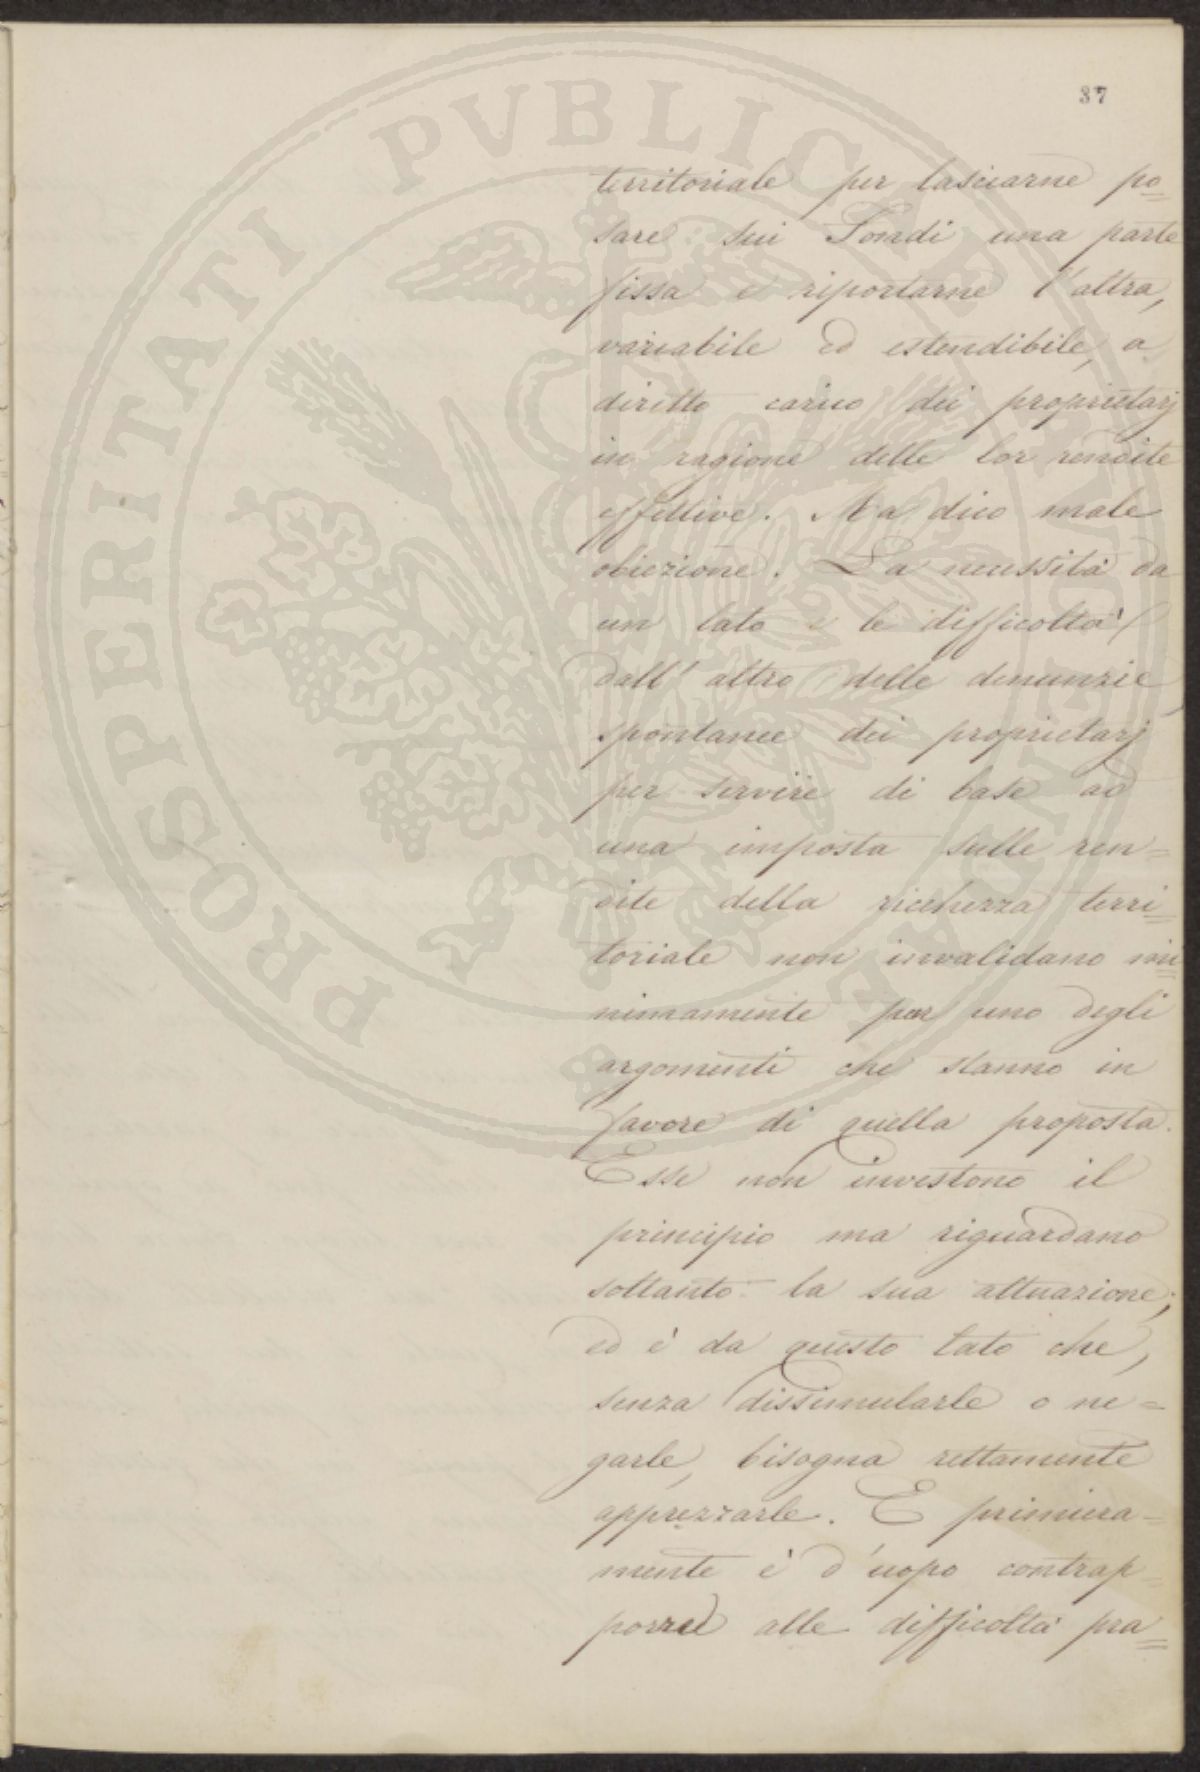 37
territoriale per lasciarne po=
sare sui Fondi una parte
fissa e riportarne l'altra,
variabile ed estendibile, a
diritto carico dei proprietarj
in ragione delle lor rendite
effettive. Ma dico male
obiezione. La necessità da
un lato e le difficoltà
dall'altro delle denunzie
spontanee dei proprietarj
per servire di base ad
una imposta sulle ren=
dite della ricchezza terri=
toriale non invalidano mi=
nimamente pur uno degli
argomenti che stanno in
favore di quella proposta.
Esse non investono il
principio ma riguardano
soltanto la sua attuazione;
ed è da questo lato che,
senza dissimularle o ne=
garle, bisogna rettamente
apprezzarle. E primiera=
mente è d'uopo contrap=
porre alle difficoltà pra=
PROSPERITATI PVBLICAE AVGENDAE